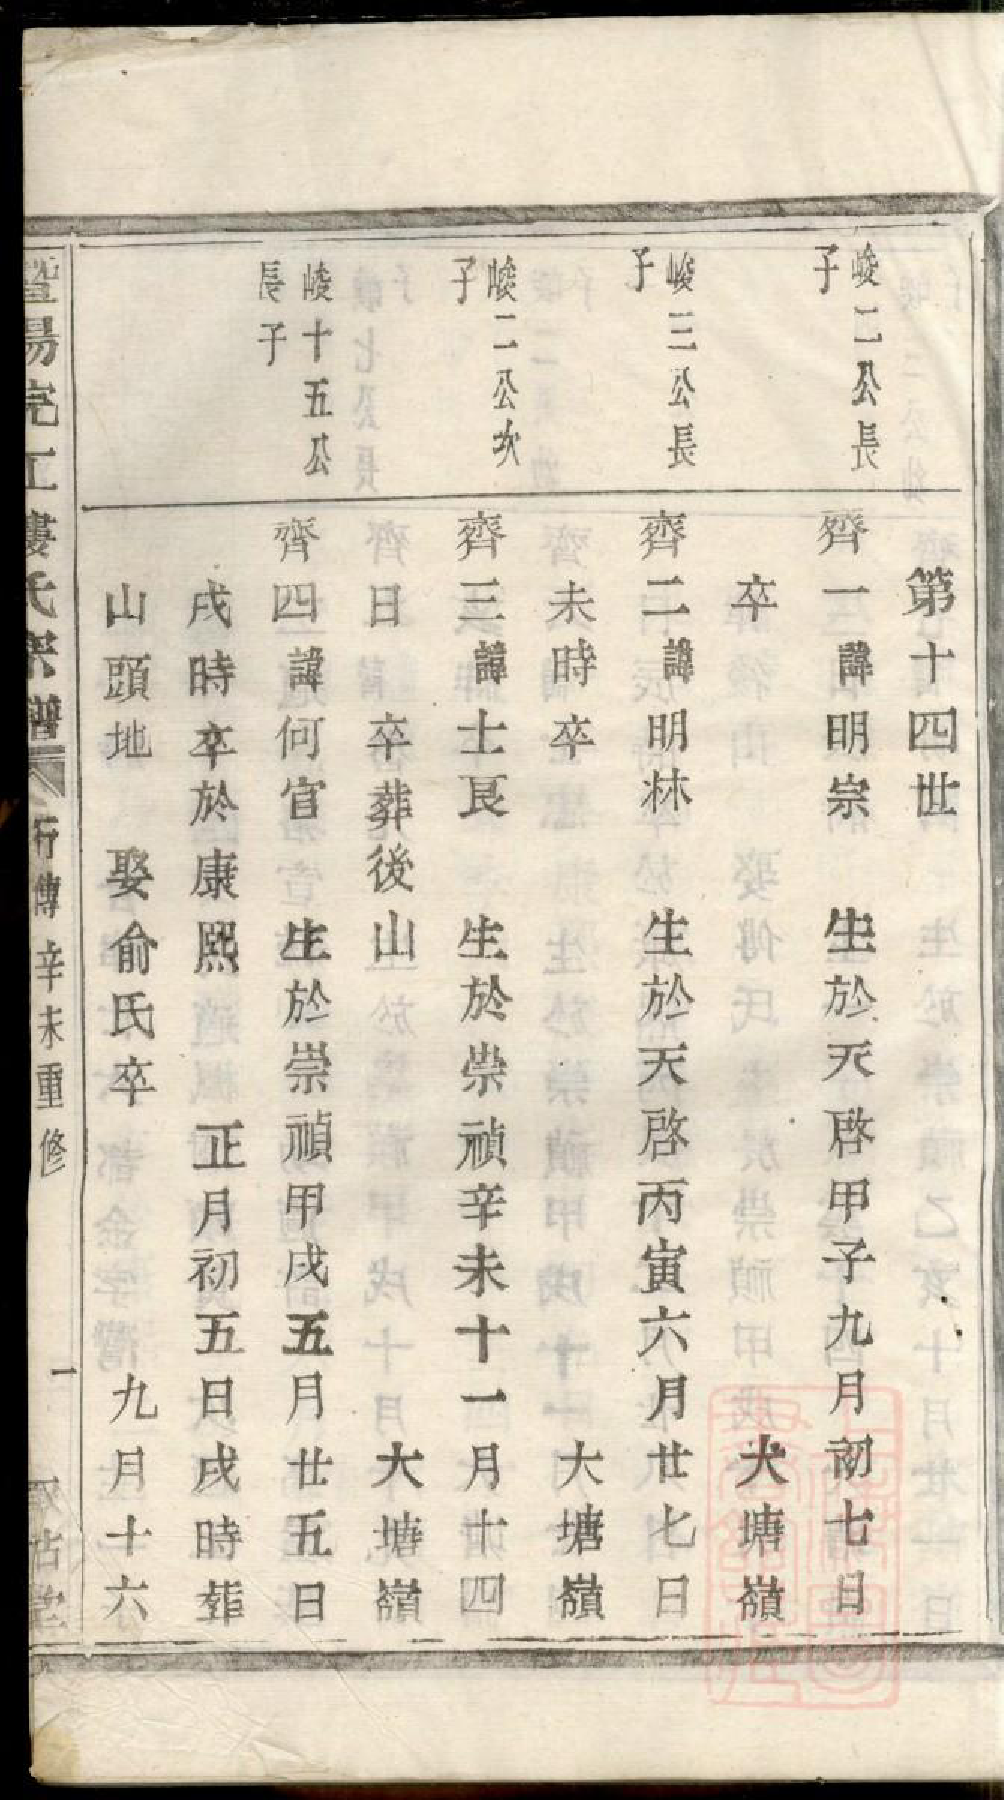 第十四世
峻二公長
子
齊一諱明宗 生於天啓甲子九月初七日
卒 大塘嶺
峻三公長
子
齊二諱明林 生於天啓丙寅六月廿七日
未時卒 大塘嶺
峻二公次
子
齊三諱士良 生於崇禎辛未十一月十四
日 卒葬後山 大塘嶺
峻十五公
長子
齊四諱何官 生於崇禎甲戌五月廿五日
戌時卒於康熙 正月初五日戌時葬
山頭地 娶俞氏卒 九月十六
暨陽完工婁氏宗譜 行傳 辛未重修 一